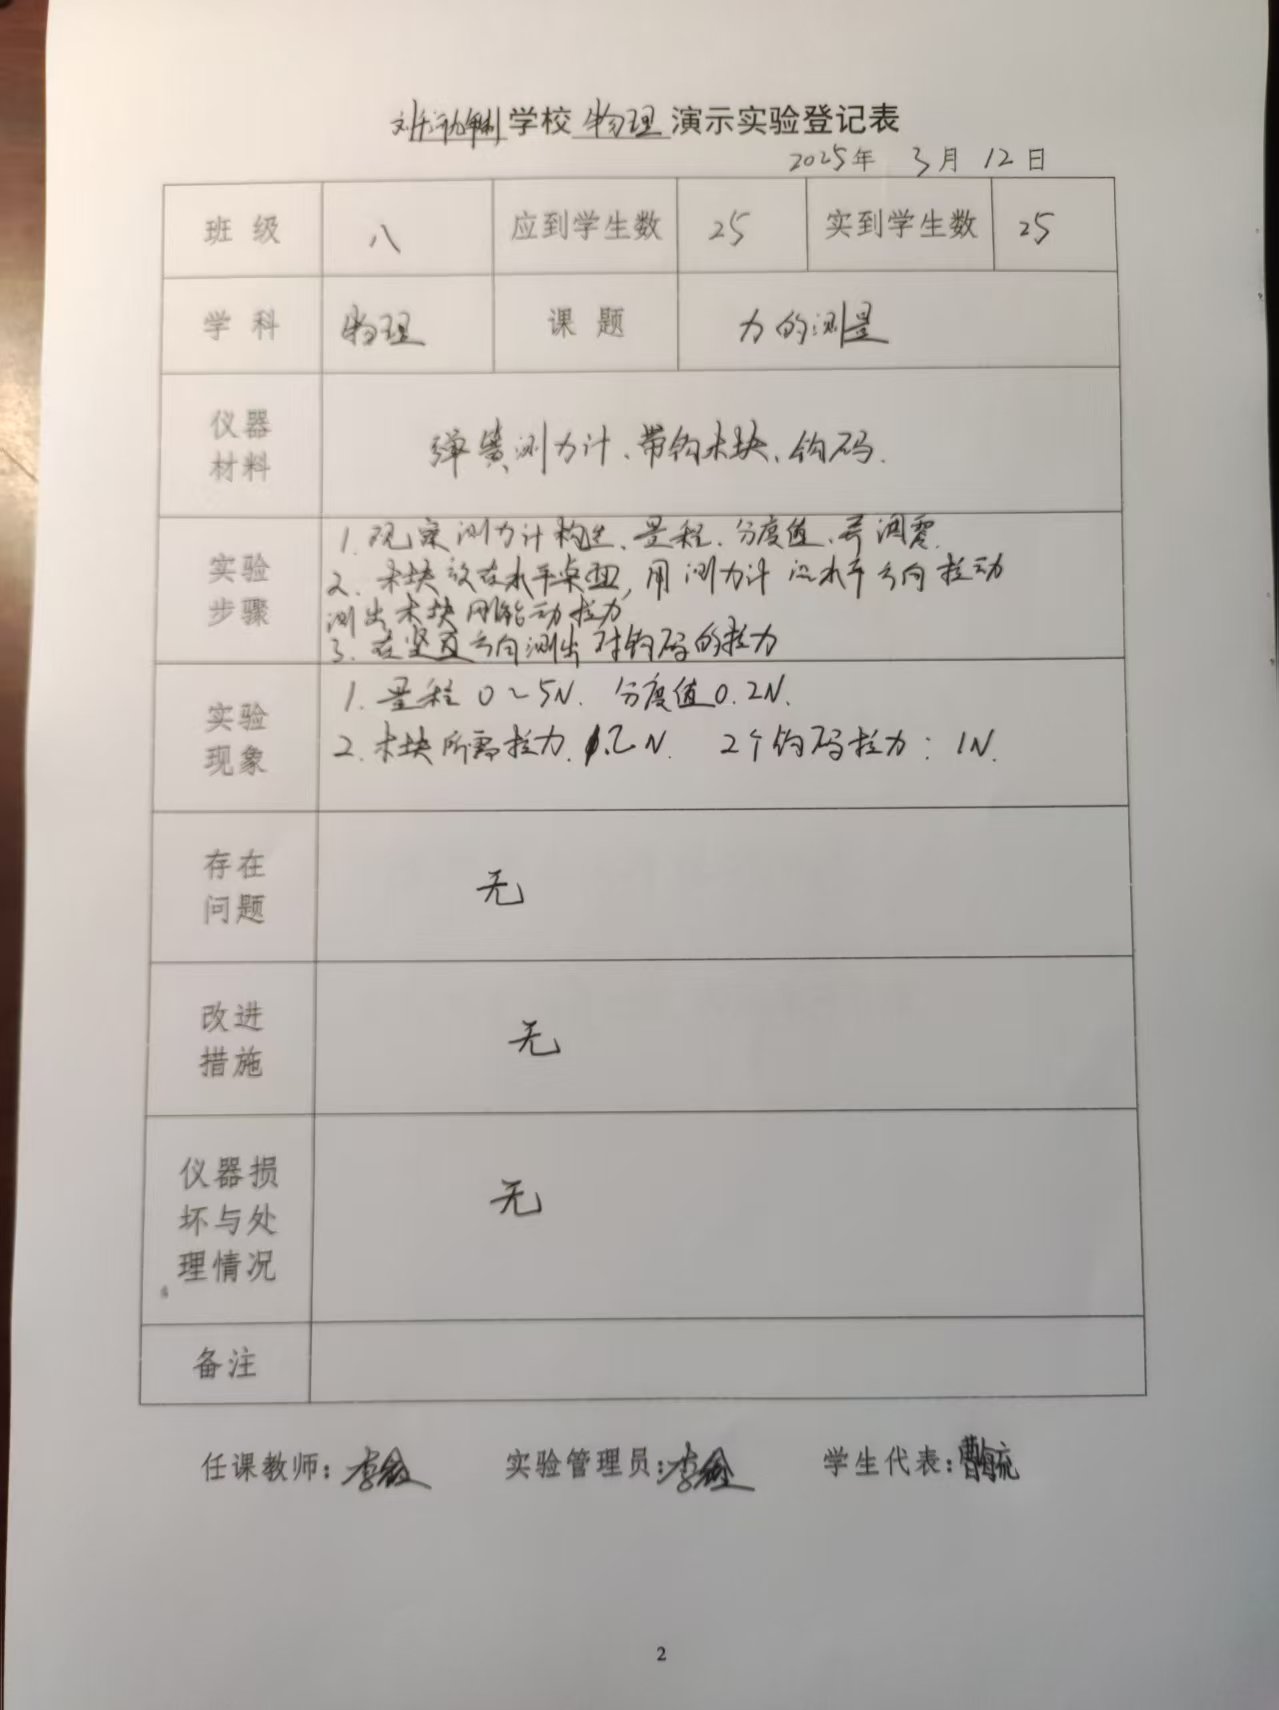 学校 物理 演示实验登记表
2025年 3月 12日
班级 八 应到学生数 25 实到学生数 25
学科 物理 课题 力的测量
仪器
材料
弹簧测力计、带钩木块、钩码.
实验
步骤
1. 观察测力计构造、量程、分度值、并调零.
2. 木块放在水平桌面,用测力计沿水平方向拉动
测出木块刚能动拉力
3. 在竖直方向测出对钩码的拉力
实验
现象
1. 量程 0~5N. 分度值0.2N.
2. 木块所需拉力. N. 2个钩码拉力: 1N.
存在
问题
无
改进
措施
无
仪器损
坏与处
理情况
无
备注
任课教师: 实验管理员: 学生代表:
2